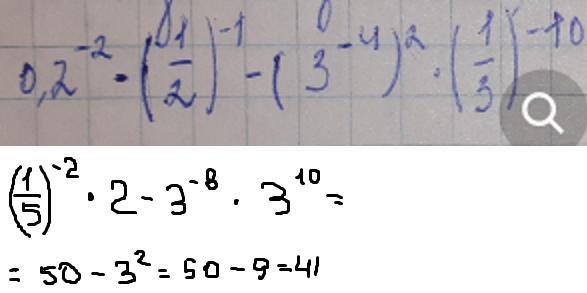 0,2⁻² · (1/2)⁻¹ - (3⁻⁴)² · (1/3)⁻¹⁰
(1/5)⁻² · 2 - 3⁻⁸ · 3¹⁰ =
= 50 - 3² = 50 - 9 = 41